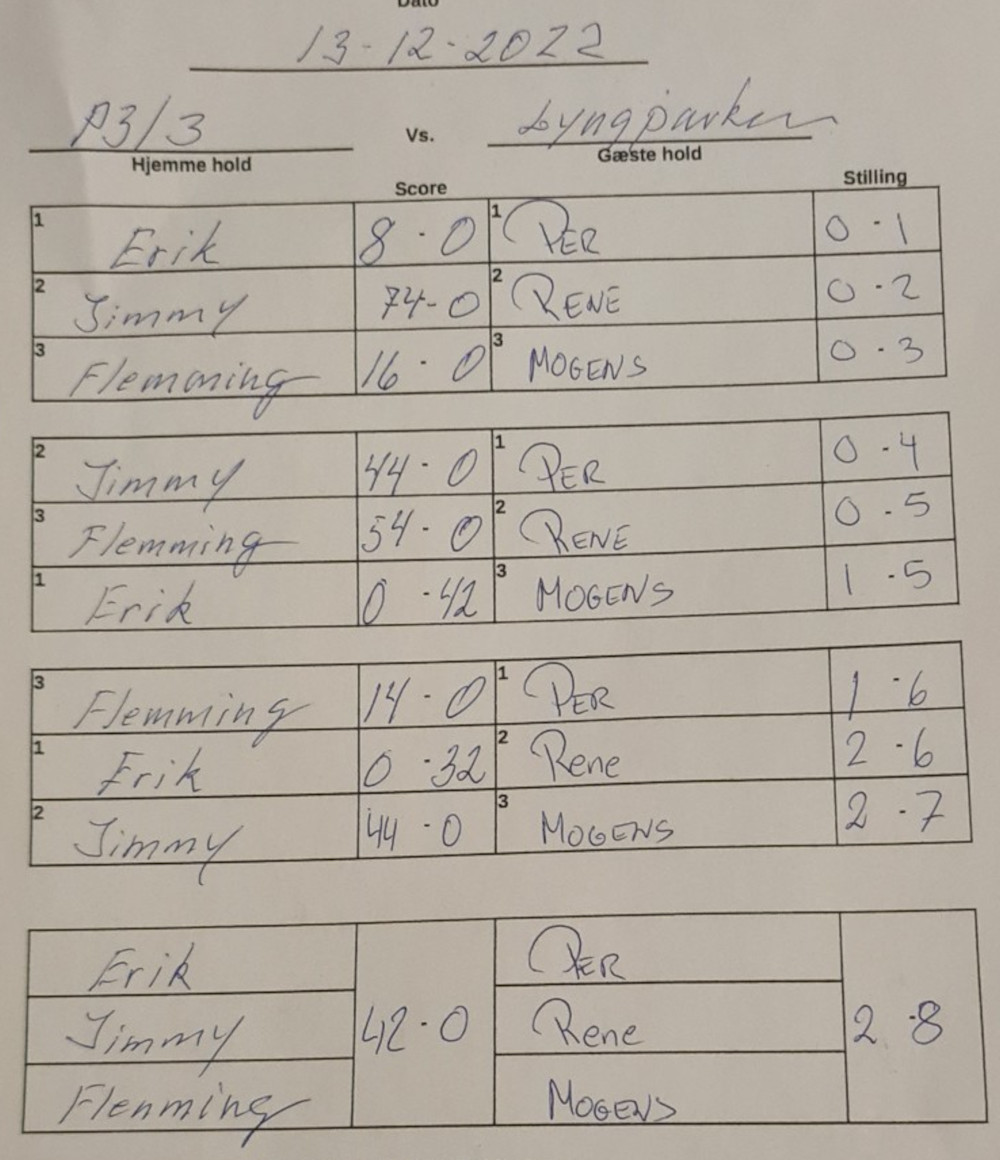 Dato
13-12-2022
P3/3 Vs. Lyngparken
Hjemme hold Gæste hold
Score Stilling
1 Erik 8-0 1 PER 0-1
2 Jimmy 74-0 2 RENE 0-2
3 Flemming 16-0 3 MOGENS 0-3
2 Jimmy 44-0 1 PER 0-4
3 Flemming 54-0 2 RENE 0-5
1 Erik 0-42 3 MOGENS 1-5
3 Flemming 14-0 1 PER 1-6
1 Erik 0-32 2 Rene 2-6
2 Jimmy 44-0 3 MOGENS 2-7
Erik PER
Jimmy 42-0 Rene 2-8
Flemming MOGENS